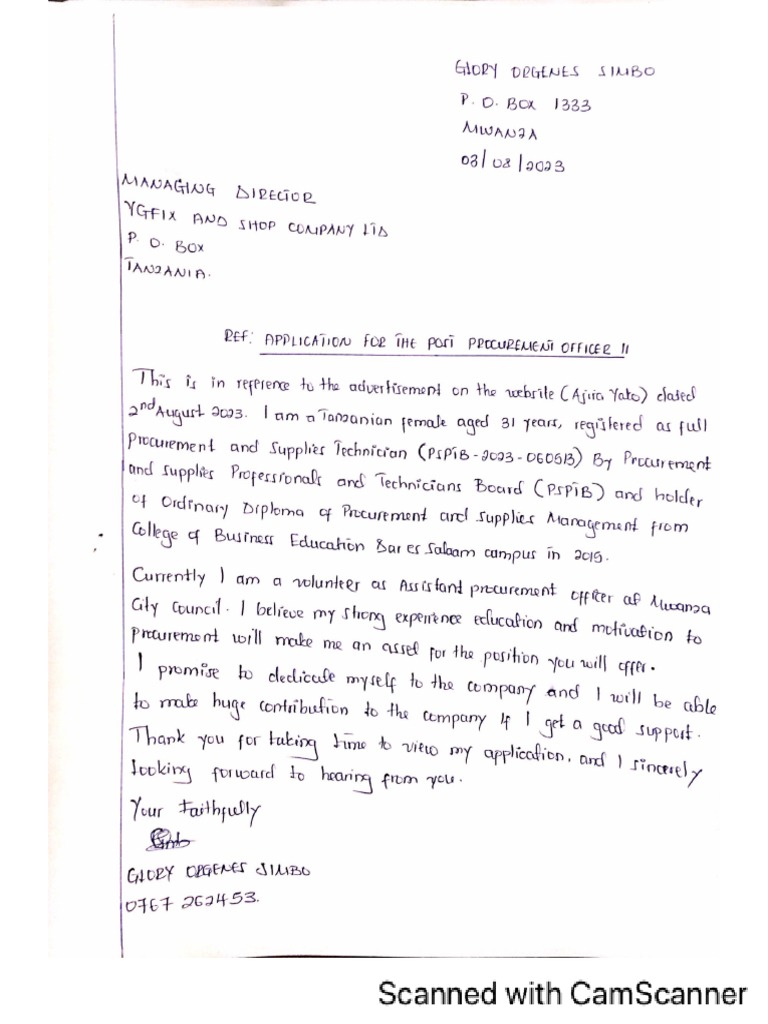 GLORY ORGENES SIMBO
P. O. BOX 1333
MWANZA
03/08/2023
MANAGING DIRECTOR
YGFIX AND SHOP COMPANY LTD
P. O. BOX
TANZANIA.
REF: APPLICATION FOR THE POST PROCUREMENT OFFICER II
This is in reference to the advertisement on the website (Ajira Yako) dated
2nd August 2023. I am a Tanzanian female aged 31 years, registered as full
Procurement and Supplies Technician (PSPTB-2023-06051B) By Procurement
and supplies Professionals and Technicians Board (PSPTB) and holder
of Ordinary Diploma of Procurement and supplies Management from
College of Business Education Dar es Salaam campus in 2015.
Currently I am a volunteer as Assistant procurement officer at Mwanza
City Council. I believe my strong experience education and motivation to
procurement will make me an asset for the position you will offer.
I promise to dedicate myself to the company and I will be able
to make huge contribution to the company if I get a good support.
Thank you for taking time to view my application, and I sincerely
looking forward to hearing from you.
Your Faithfully
GLORY ORGENES SIMBO
0767 262453.
Scanned with CamScanner